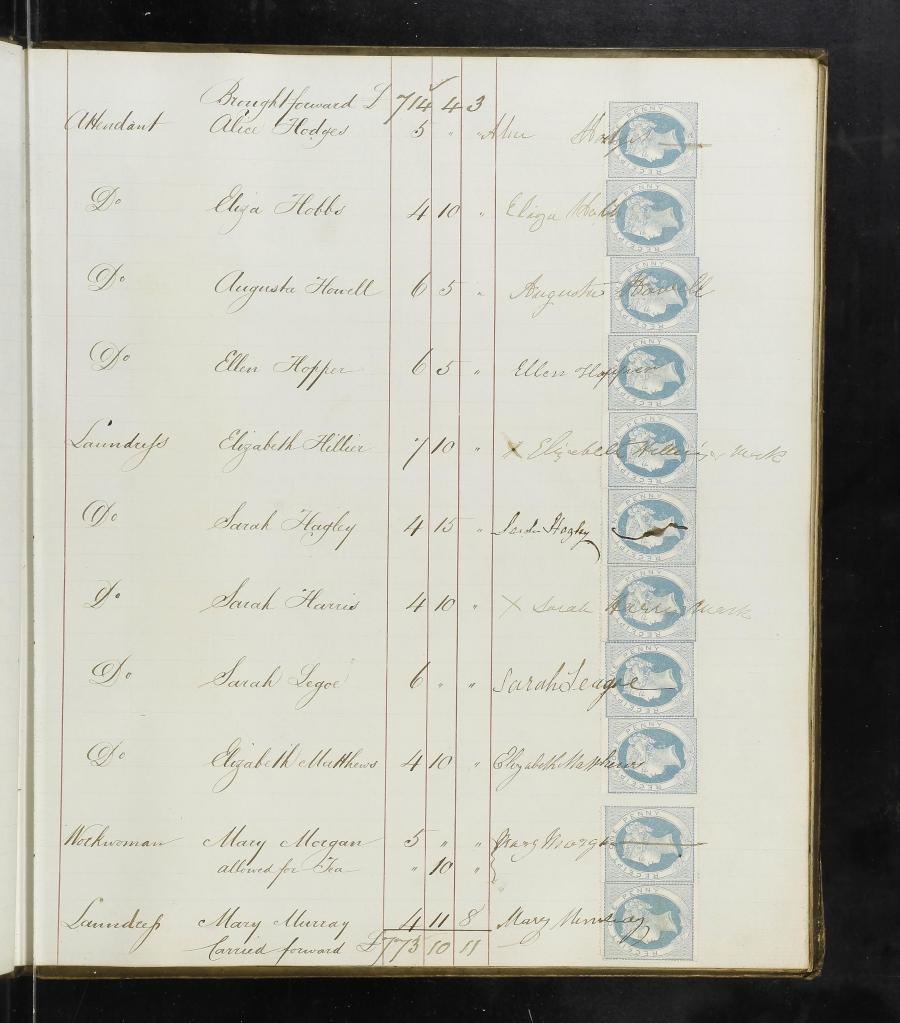 Brought forward £ 714 4 3
Attendant Alice Hodges 5 " " Alice Hodges
Do Eliza Hobbs 4 10 " Eliza Hobbs
Do Augusta Howell 6 5 " Augusta Howell
Do Ellen Hopper 6 5 " Ellen Hopper
Laundress Elizabeth Hillier 7 10 " X Elizabeth Hillier Mark
Do Sarah Hagley 4 15 " Sarah Hagley
Do Sarah Harris 4 10 " X Sarah Harris Mark
Do Sarah Legoe 6 " " Sarah Leagoe
Do Elizabeth Matthews 4 10 " Elizabeth Matthews
Workwoman Mary Morgan 5 " " Mary Morgan
allowed for Tea " 10 "
Laundress Mary Murray 4 11 8 Mary Murray
Carried forward £ 773 10 11
PENNY RECEIPT
PENNY RECEIPT
PENNY RECEIPT
PENNY RECEIPT
PENNY RECEIPT
PENNY RECEIPT
PENNY RECEIPT
PENNY RECEIPT
PENNY RECEIPT
PENNY RECEIPT
PENNY RECEIPT